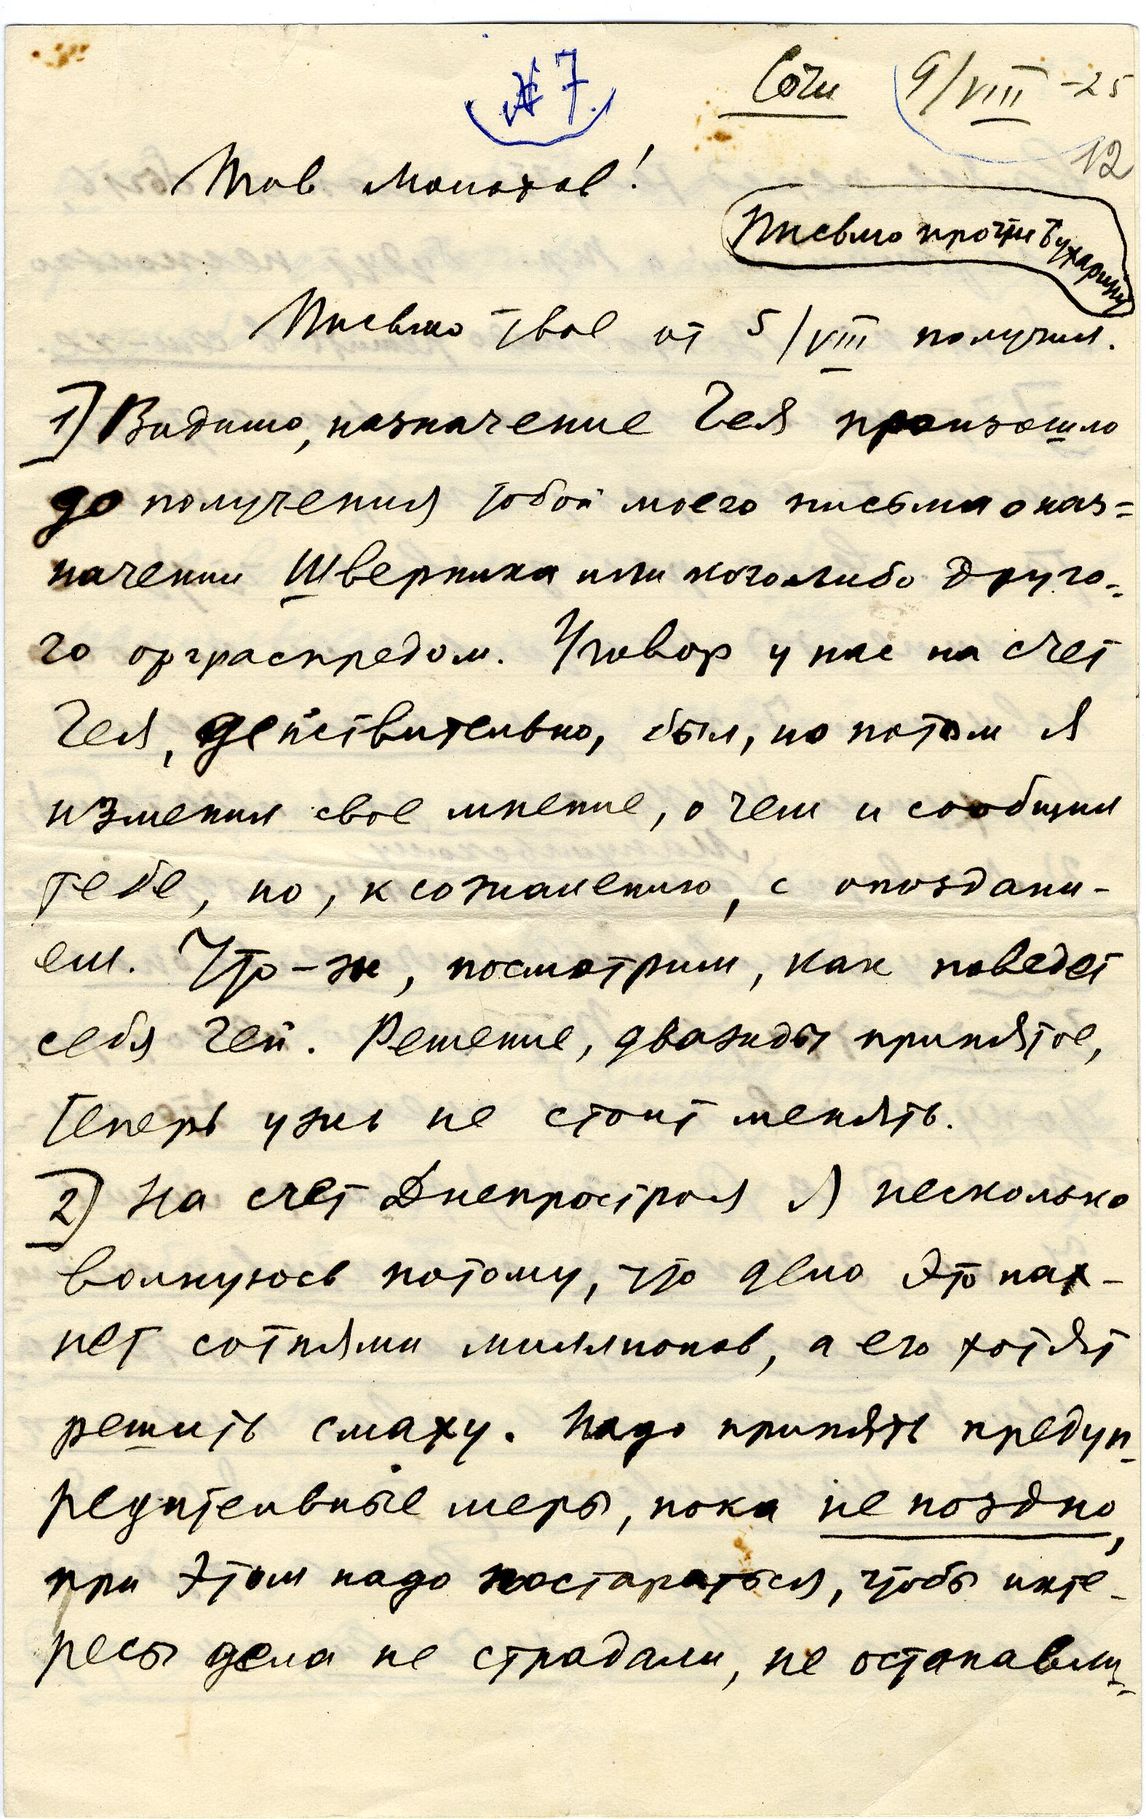 № 7.
Сочи 9/VIII -25
12
Тов Молотов!
Письмо прочти Бухарину
Письмо твое от 5/VIII получил.
1) Видимо, назначение Гея произошло
до получения тобой моего письма о наз=
начении Шверника или кого-либо друго-
го орграспредом. Уговор у нас на счет
Гея, действительно, был, но потом я
изменил свое мнение, о чем и сообщил
тебе, но, к сожалению, с опоздани-
ем. Что-ж, посмотрим, как поведет
себя Гей. Решение, дважды принятое,
теперь уже не стоит менять.
2) На счет Днепростроя я несколько
волнуюсь потому, что дело это пах-
нет сотнями миллионов, а его хотят
решить смаху. Надо принять предуп-
редительные меры, пока не поздно,
при этом надо постараться, чтобы инте-
ресы дела не страдали, не останавли-